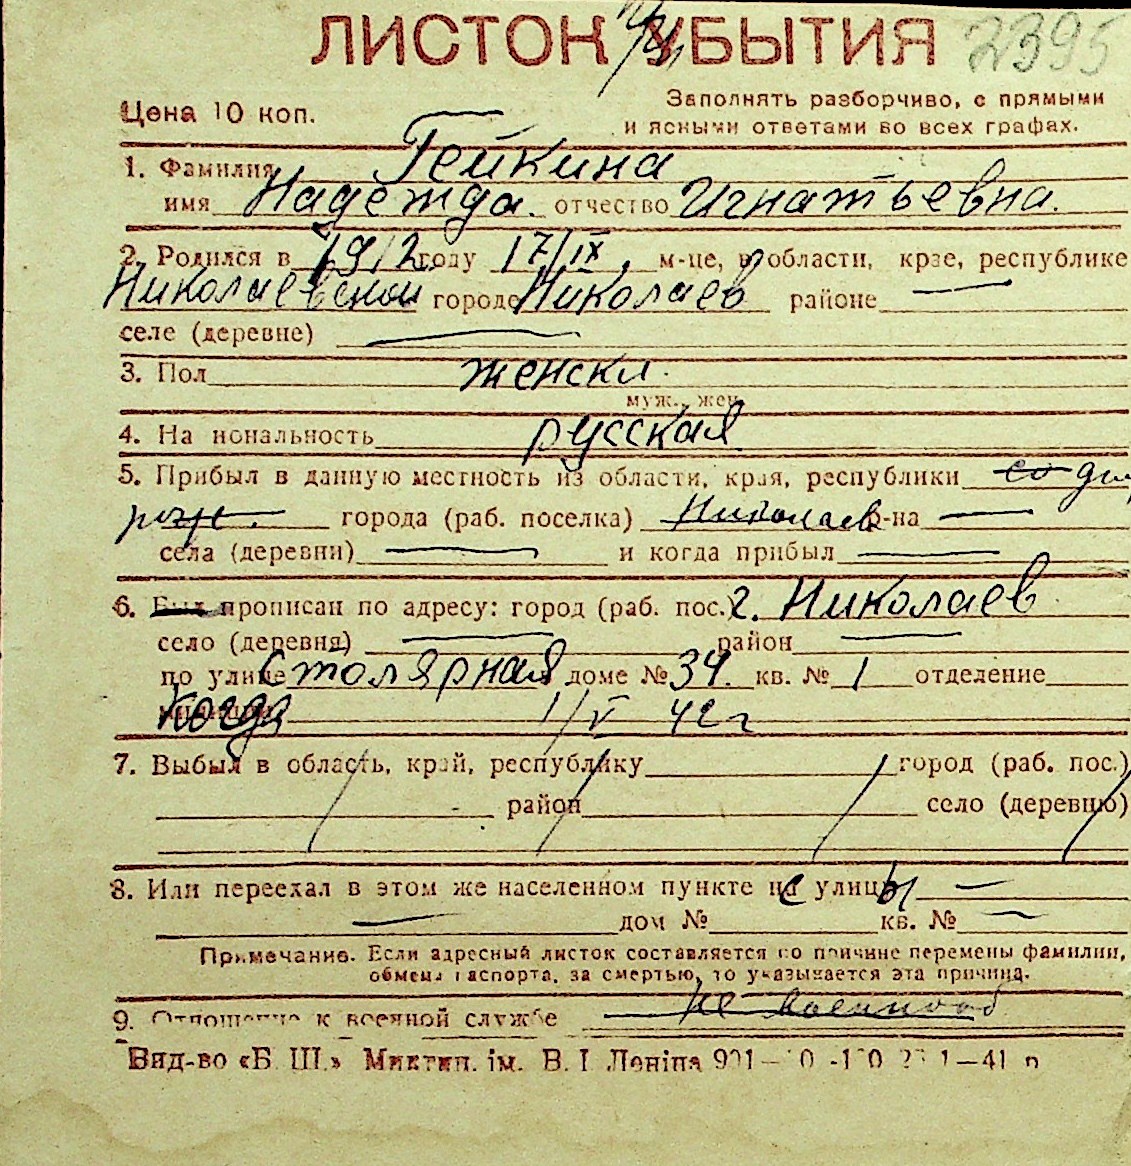 ЛИСТОК УБЫТИЯ 2395
Цена 10 коп.
Заполнять разборчиво, с прямыми
и ясными ответами во всех графах.
1. Фамилия Гейкина
имя Надежда. отчество Игнатьевна.
2. Родился в 1912 году 17/IX, м-це, в области, крае, республике
Николаевской городе Николаев районе —
селе (деревне) —
3. Пол женскл.
муж., жен.
4. Национальность русская
5. Прибыл в данную местность из области, края, республики со дня
рожд. города (раб. поселка) Николаев р-на —
села (деревни) — и когда прибыл —
6. Был прописан по адресу: город (раб. пос.) г. Николаев
село (деревня) — район —
по улице Столярная доме № 34. кв. № 1 отделение
когда 1/V 42 г
7. Выбыл в область, край, республику город (раб. пос.)
район село (деревню)
8. Или переехал в этом же населенном пункте с улицы —
— дом № кв. № —
Примечание. Если адресный листок составляется по причине перемены фамилии,
обмена паспорта, за смертью, то указывается эта причина.
9. Отношение к военной службе не военнооб
Вид-во «Б. Ш.» Миктип. ім. В. І. Леніна